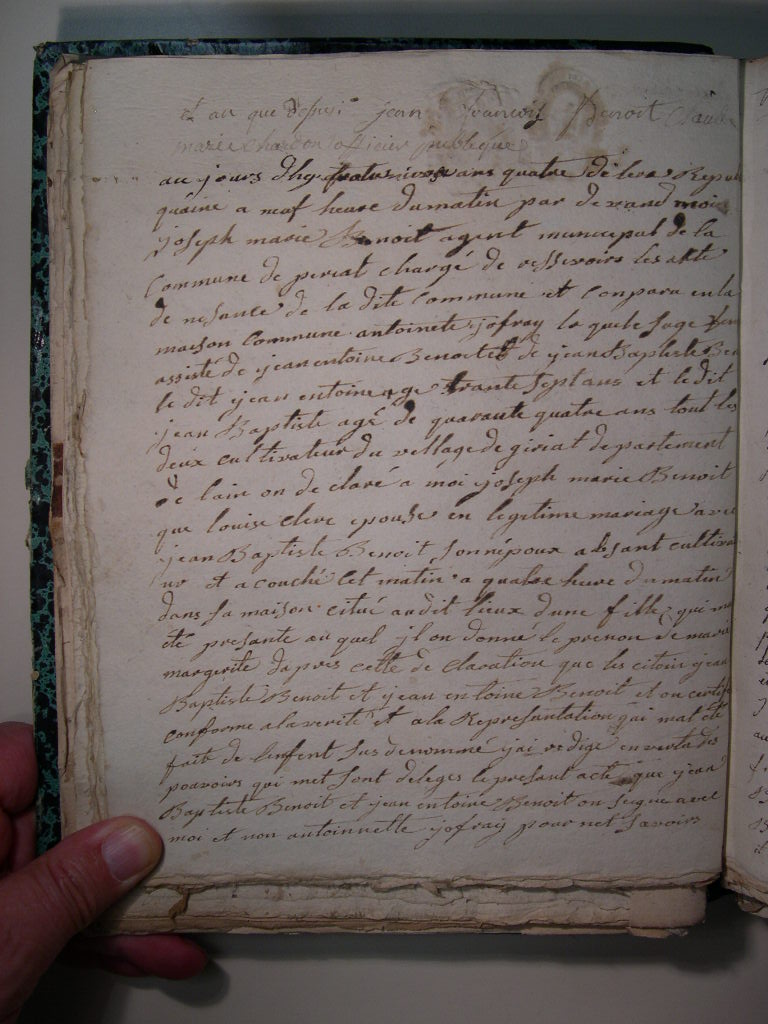 et au que dessus jean francois Benoit Claude
marie Chardon officier publique
au jours dhuy ans quatre de lera Repu
quaine a neuf heure du matin par devand moi
joseph marie Benoit agent municipal de la
Commune de periat chargé de ressevoirs les akte
de nesance de la dite Commune et Conparu en la
maison Commune antoinete jofray la quele sage fem
assisté de jean entoine Benoit et de jean Baptiste Ben
le dit jean entoine age trante sept ans et le dit
jean Baptiste agé de quarante quatre ans tout les
deux cultivateur du vellage de giriat departement
de lain on de claré a moi joseph marie Benoit
que louise clerc epouse en legitime mariage avec
jean Baptiste Benoit son népoux absant cultiva
ur et a couché cet matin a quatre heure du matin
dans sa maison citué audit lieux dune fille qui ma
été presante au quel jl on donné le prenon de marie
margerite dapres cette de claration que les citoin jean
Baptiste Benoit et jean entoine Benoit et on certifie
conforme a la verité et a la Representation qui mat été
faite de lenfent sus denommé jai redigé en vertu des
pouvoirs qui met sont deleges le presant acte que jean
Baptiste Benoit et jean entoine Benoit on signe avec
moi et non antoinnette jofray pour net savoirs